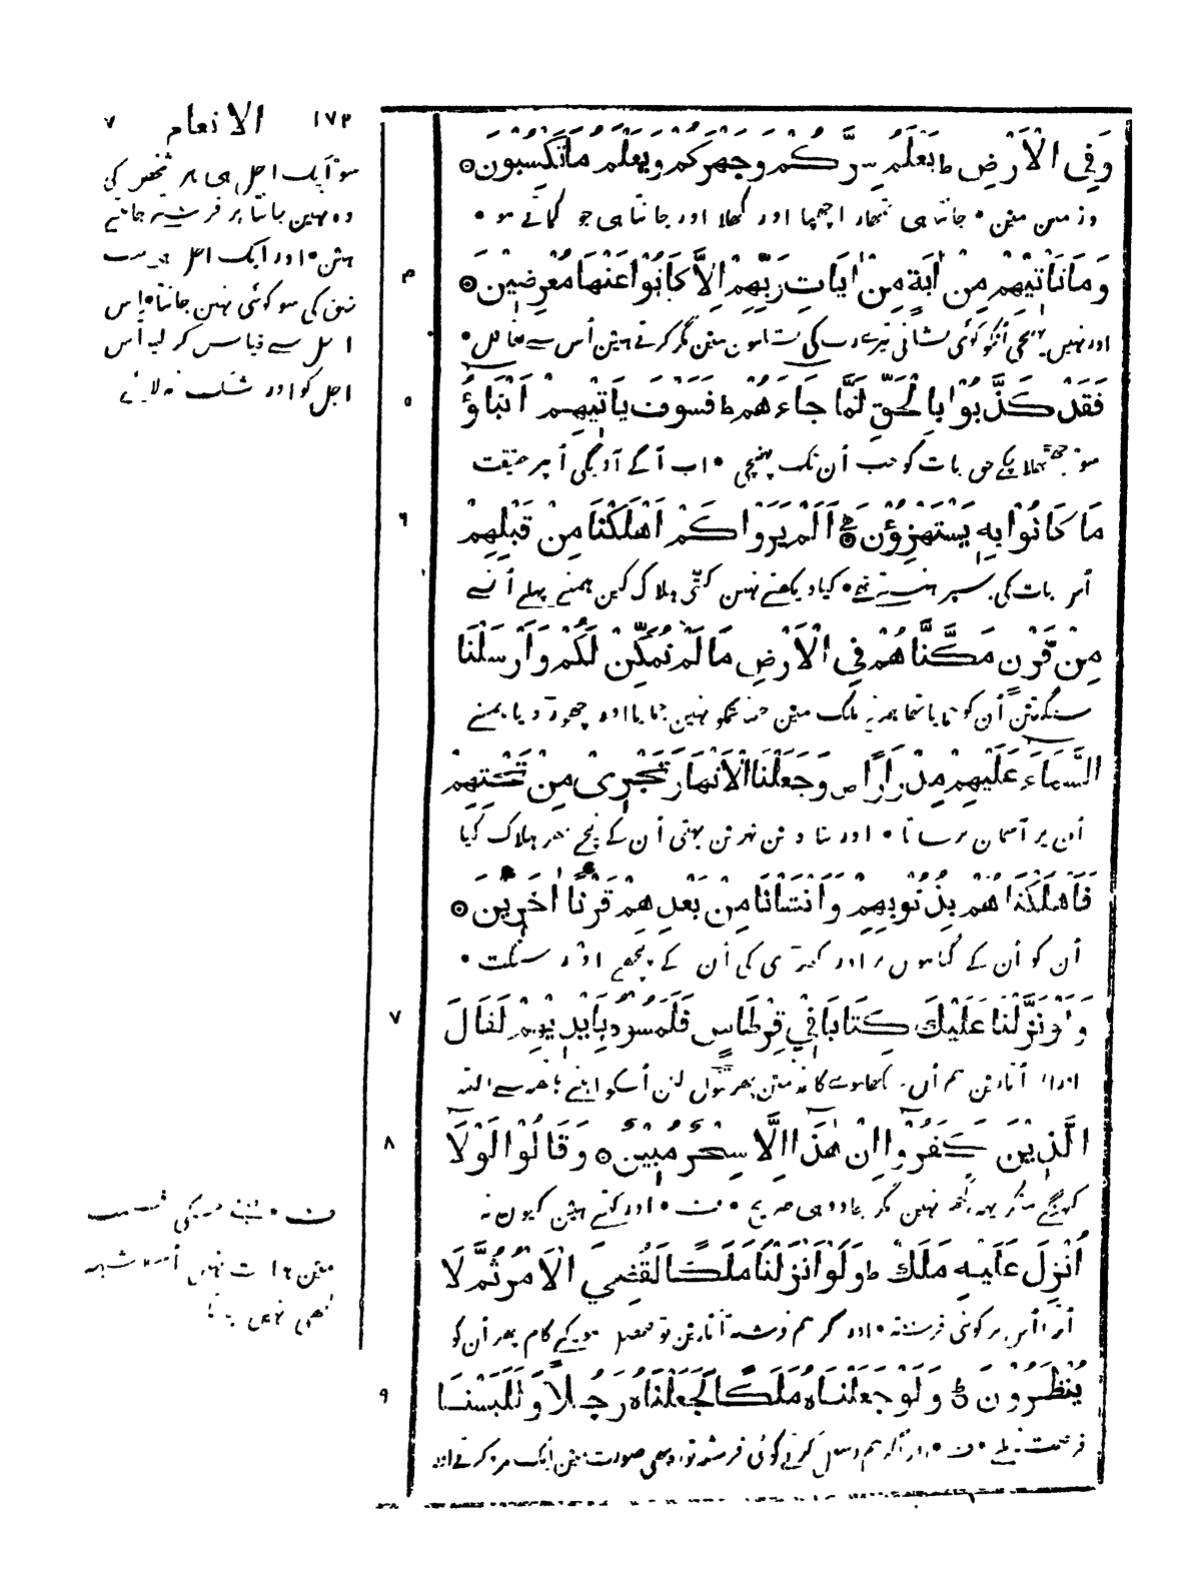 ١٧٣ الانعام ٧
وَفِي الْاَرْضِ ط يَعْلَمُ سِرَّكُمْ وَجَهْرَكُمْ وَيَعْلَمُ مَا تَكْسِبُونَ ۝
زمین مین • جانتا ہی تمھارا چھپا اور کھلا اور جانتا ہی جو کماتے ہو •
وَمَا تَأْتِيْهِمْ مِنْ اٰيَةٍ مِنْ اٰيَاتِ رَبِّهِمْ اِلَّا كَانُوْا عَنْهَا مُعْرِضِيْنَ ۝
اور نہیں پہنچی اُنکو کوئی نشانی کی مین مگر کرتے ہین اُس سے تغافل •
٥ فَقَدْ كَذَّبُوْا بِالْحَقِّ لَمَّا جَاءَهُمْ ط فَسَوْفَ يَأْتِيْهِمْ اَنْبَاؤُ
سو جھٹلا چکے حق بات کو جب اُن تک پہنچی • اب آگے آویگی اُپر حقیقت
٦ مَا كَانُوْا بِهٖ يَسْتَهْزِؤُنَ ۝ اَلَمْ يَرَوْا كَمْ اَهْلَكْنَا مِنْ قَبْلِهِمْ
اُس بات کی جسپر ہنستے تھے • کیا دیکھتے نہین کتنی ہلاک کین ہمنے پہلے اُنسے
مِنْ قَرْنٍ مَكَّنَّاهُمْ فِي الْاَرْضِ مَا لَمْ نُمَكِّنْ لَكُمْ وَاَرْسَلْنَا
سنگتین اُن کو جمایا تھا ملک مین تمکو نہین جمایا اور چھوڑ دیا ہمنے
السَّمَاءَ عَلَيْهِمْ مِدْرَارًا ص وَجَعَلْنَا الْاَنْهَارَ تَجْرِيْ مِنْ تَحْتِهِمْ
اُن پر آسمان برساتا • اور بنا دین نہرین بہتی اُن کے نیچے پھر ہلاک کیا
فَاَهْلَكْنَاهُمْ بِذُنُوْبِهِمْ وَاَنْشَأْنَا مِنْ بَعْدِهِمْ قَرْنًا اٰخَرِيْنَ ۝
اُن کو اُن کے گناہوں پر اور کھڑی کی اُن کے پیچھے اور سنگت •
٧ وَلَوْ نَزَّلْنَا عَلَيْكَ كِتَابًا فِيْ قِرْطَاسٍ فَلَمَسُوْهُ بِاَيْدِيْهِمْ لَقَالَ
اُتارین ہم مین پھر ٹٹول لین اُسکو اپنے ہاتھ سے البتہ
٨ الَّذِيْنَ كَفَرُوْا اِنْ هٰذَا اِلَّا سِحْرٌ مُبِيْنٌ ۝ وَقَالُوْا لَوْلَا
کہینگے منکر یہہ کچھ نہین مگر جادو ہی صریح • ف • اور کہتے ہین کیون نہ
اُنْزِلَ عَلَيْهِ مَلَكٌ ط وَلَوْ اَنْزَلْنَا مَلَكًا لَقُضِيَ الْاَمْرُ ثُمَّ لَا
اُترا اُس پر کوئی فرشتہ • اور اگر ہم فرشتہ اُتارین تو فیصل ہو چکے کام پھر اُن کو
٩ يُنْظَرُوْنَ ۝ وَلَوْ جَعَلْنَاهُ مَلَكًا لَجَعَلْنَاهُ رَجُلًا وَلَلَبَسْنَا
فرصت نہ ملے • ف • اور اگر ہم رسول کرتے کوئی فرشتہ تو وہ بھی صورت مین ایک مرد کرتے اور
سو ایک اجل ہی ہر شخص کی
وہ نہین جانتا پر فرشتے جانتے
ہین • اور ایک اجل ہی سب
خلق کی سو کوئی نہین جانتا • اِس
اجل سے قیاس کر لیا اُس
اجل کو اور شک نہ لائے
ف • قسمت
مین نہین شبہہ
کبھی نہین